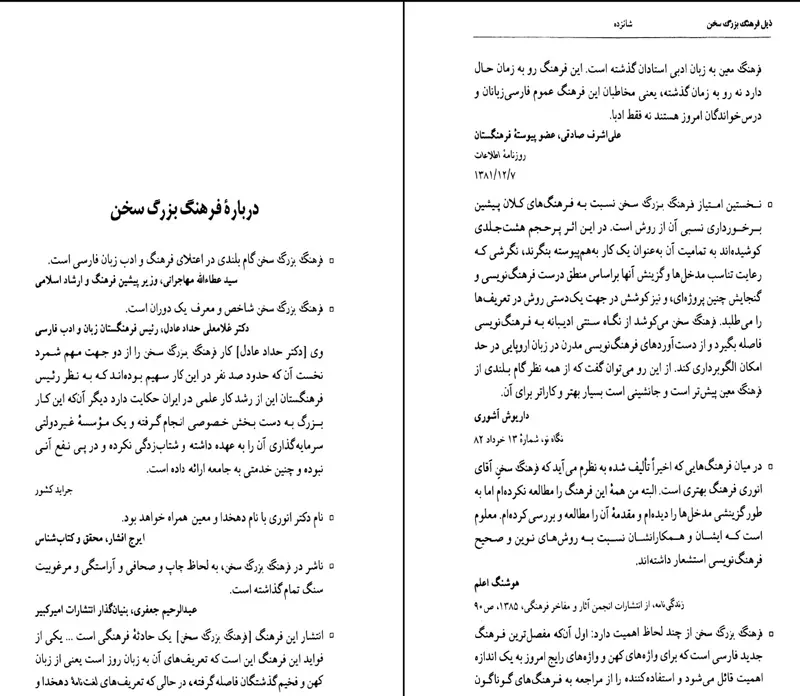 دربارهٔ فرهنگ بزرگ سخن
▫ فرهنگ بزرگ سخن گام بلندی در اعتلای فرهنگ و ادب زبان فارسی است.
سید عطاءالله مهاجرانی، وزیر پیشین فرهنگ و ارشاد اسلامی
▫ فرهنگ بزرگ سخن شاخص و معرف یک دوران است.
دکتر غلامعلی حداد عادل، رئیس فرهنگستان زبان و ادب فارسی
وی [دکتر حداد عادل] کار فرهنگ بزرگ سخن را از دو جهت مهم شمرد
نخست آن که حدود صد نفر در این کار سهیم بوده‌اند که به نظر رئیس
فرهنگستان این از رشد کار علمی در ایران حکایت دارد دیگر آنکه این کار
بزرگ به دست بخش خصوصی انجام گرفته و یک مؤسسهٔ غیردولتی
سرمایه‌گذاری آن را به عهده داشته و شتاب‌زدگی نکرده و در پی نفع آنی
نبوده و چنین خدمتی به جامعه ارائه داده است.
جراید کشور
▫ نام دکتر انوری با نام دهخدا و معین همراه خواهد بود.
ایرج افشار، محقق و کتاب‌شناس
▫ ناشر در فرهنگ بزرگ سخن، به لحاظ چاپ و صحافی و آراستگی و مرغوبیت
سنگ تمام گذاشته است.
عبدالرحیم جعفری، بنیان‌گذار انتشارات امیرکبیر
▫ انتشار این فرهنگ [فرهنگ بزرگ سخن] یک حادثهٔ فرهنگی است ... یکی از
فواید این فرهنگ این است که تعریف‌های آن به زبان روز است یعنی از زبان
کهن و فخیم گذشتگان فاصله گرفته، در حالی که تعریف‌های لغت‌نامهٔ دهخدا و
ذیل فرهنگ بزرگ سخن شانزده
فرهنگ معین به زبان ادبی استادان گذشته است. این فرهنگ رو به زمان حال
دارد نه رو به زمان گذشته، یعنی مخاطبان این فرهنگ عموم فارسی‌زبانان و
درس‌خواندگان امروز هستند نه فقط ادبا.
علی‌اشرف صادقی، عضو پیوستهٔ فرهنگستان
روزنامهٔ اطلاعات
۱۳۸۱/۱۲/۷
▫ نخستین امتیاز فرهنگ بزرگ سخن نسبت به فرهنگ‌های کلان پیشین
برخورداری نسبی آن از روش است. در این اثر پرحجم هشت‌جلدی
کوشیده‌اند به تمامیت آن به‌عنوان یک کار به‌هم‌پیوسته بنگرند، نگرشی که
رعایت تناسب مدخل‌ها و گزینش آنها براساس منطق درست فرهنگ‌نویسی و
گنجایش چنین پروژه‌ای، و نیز کوشش در جهت یک‌دستی روش در تعریف‌ها
را می‌طلبد. فرهنگ سخن می‌کوشد از نگاه سنتی ادیبانه به فرهنگ‌نویسی
فاصله بگیرد و از دست‌آوردهای فرهنگ‌نویسی مدرن در زبان اروپایی در حد
امکان الگوبرداری کند. از این رو می‌توان گفت که از همه نظر گام بلندی از
فرهنگ معین پیش‌تر است و جانشینی است بسیار بهتر و کاراتر برای آن.
داریوش آشوری
نگاه نو، شمارهٔ ۱۳ خرداد ۸۲
▫ در میان فرهنگ‌هایی که اخیراً تألیف شده به نظرم می‌آید که فرهنگ سخن آقای
انوری فرهنگ بهتری است. البته من همهٔ این فرهنگ را مطالعه نکرده‌ام اما به
طور گزینشی مدخل‌ها را دیده‌ام و مقدمهٔ آن را مطالعه و بررسی کرده‌ام. معلوم
است که ایشان و همکارانشان نسبت به روش‌های نوین و صحیح
فرهنگ‌نویسی استشعار داشته‌اند.
هوشنگ اعلم
زندگی‌نامه، از انتشارات انجمن آثار و مفاخر فرهنگی، ۱۳۸۵، ص ۹۰
▫ فرهنگ بزرگ سخن از چند لحاظ اهمیت دارد: اول آن‌که مفصل‌ترین فرهنگ
جدید فارسی است که برای واژه‌های کهن و واژه‌های رایج امروز به یک اندازه
اهمیت قائل می‌شود و استفاده‌کننده را از مراجعه به فرهنگ‌های گوناگون